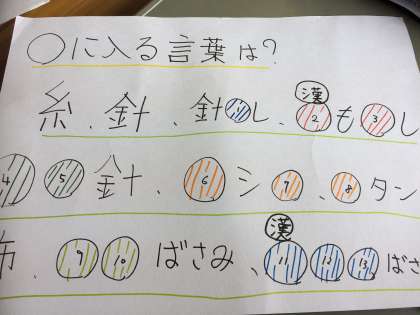 ○に入る言葉は?
糸、針、針①し、漢②も③し
④⑤針、⑥シ⑦、⑧タン
布、⑨⑩ばさみ、漢⑪⑫⑬ばさ